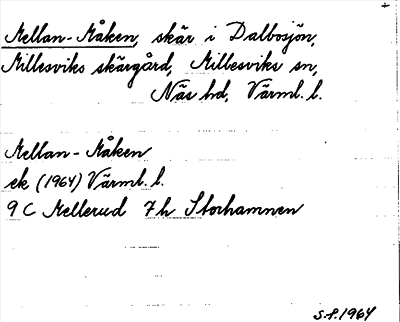 Mellan-Måken, skär i Dalbosjön,
Millesviks skärgård, Millesviks sn,
Näs hd, Värml. l.
Mellan-Måken
ek (1964) Värml. l.
9 C Mellerud 7h Storhamnen
S.f. 1964